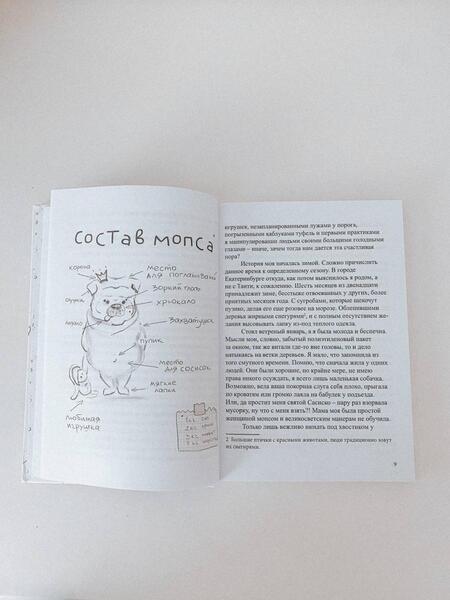 состав мопса
корона
место
для поглаживаний
зоркий глаз
ушки
хрюкало
пузико
пупик
место
для сосисок
мягкие
лапки
любимая
игрушка
игрушек, незапланированными лужами у порога,
погрызенными каблуками туфель и первыми практиками
в манипулировании людьми своими большими голодными
глазами – иначе, зачем тогда нам дается эта счастливая
пора?
История моя началась зимой. Сложно причислить
данное время к определенному сезону. В городе
Екатеринбурге откуда, как потом выяснилось я родом, а
не с Таити, к сожалению. Шесть месяцев из двенадцати
принадлежит зиме, бесстыже отвоеванных у других, более
приятных месяцев года. С сугробами, которые щекочут
пузико, делая его еще розовее на морозе. Облепившими
деревья жирными снегирями², и с полным отсутствием же-
лания высовывать лапку из-под теплого одеяла.
Стоял ветреный январь, я была молода и беспечна.
Мысли мои, словно, забытый полиэтиленовый пакет
за окном, так же витали где-то вне головы, то и дело
натыкаясь на ветки деревьев. Я мало, что запомнила из
того смутного времени. Помню, что сначала жила у одних
людей. Они были хорошие, по крайне мере, не имею
права никого осуждать, я всего лишь маленькая собачка.
Возможно, вела ваша покорная слуга себя плохо, прыгала
по кроватям или громко лаяла на бабулек у подъезда.
Или, да простит меня святой Сасисио – пару раз взорвала
мусорку, ну что с меня взять?! Мама моя была простой
женщиной мопсом и великосветским манерам не обучила.
Только лишь вежливо вихать под хвостиком у
2 Большие птички с красными животами, люди традиционно зовут
их свитерями.
9